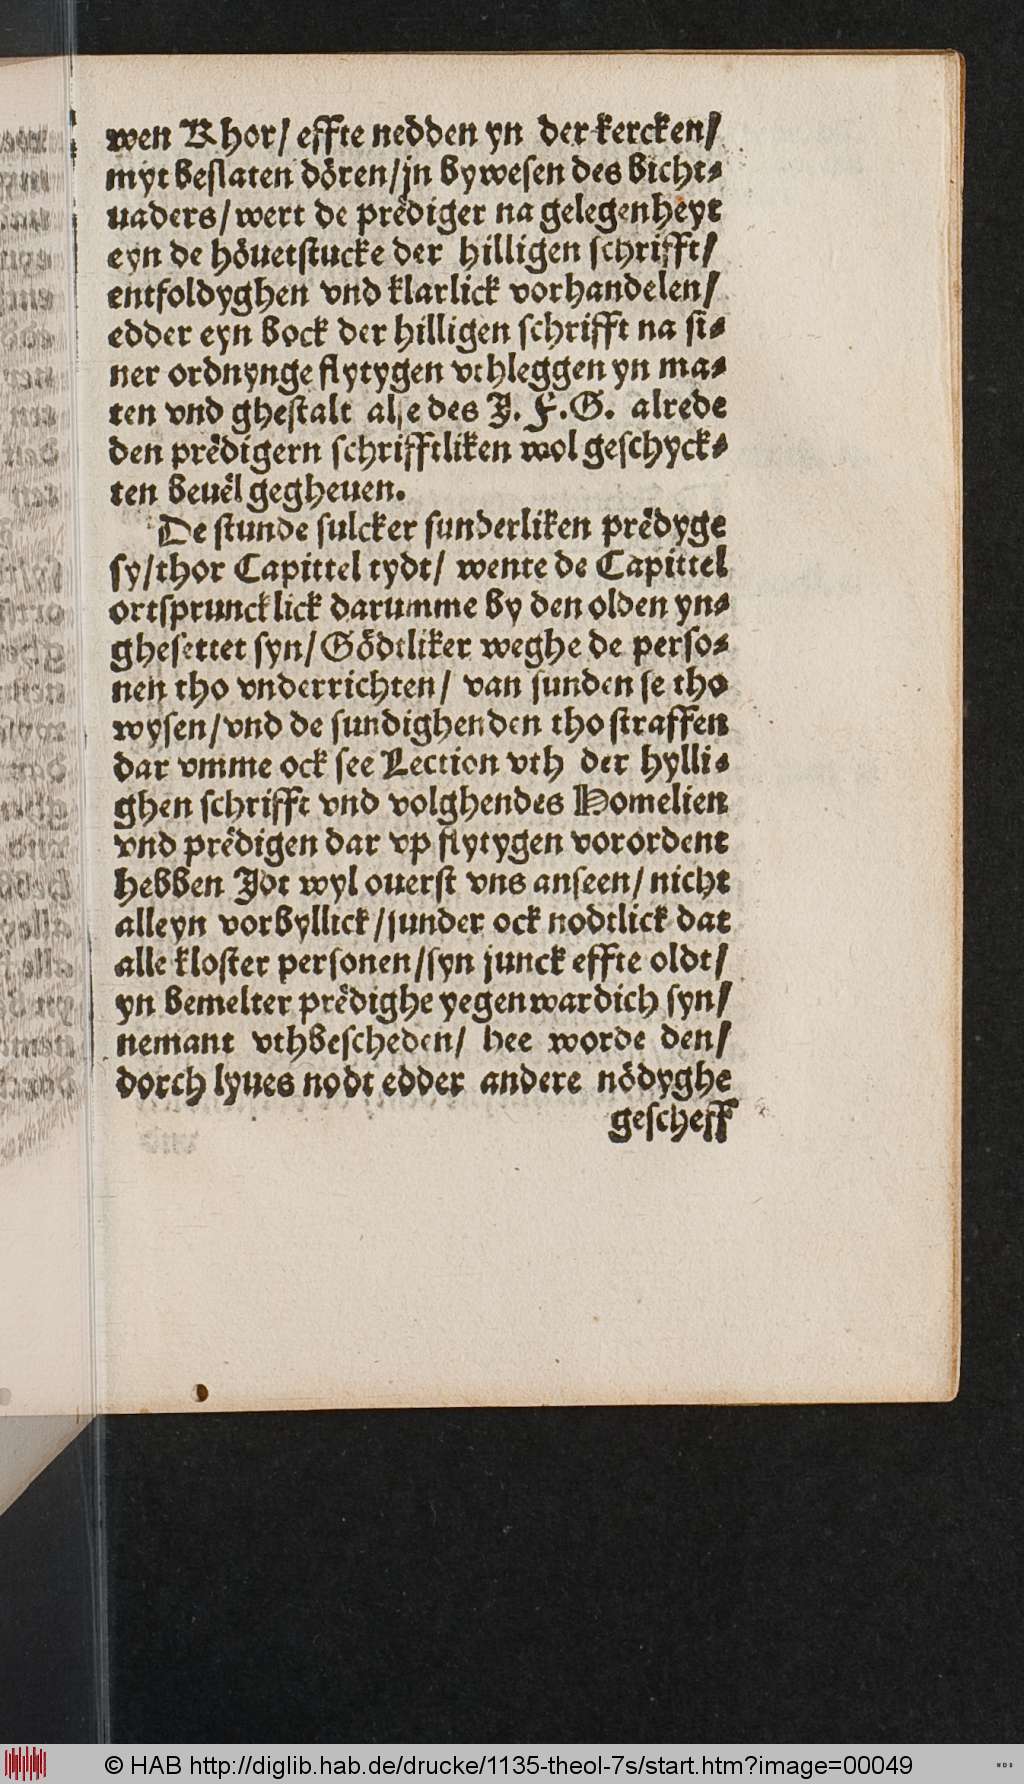 wen Khor/ effte nedden yn der kercken/
myt beslaten dören/jn bywesen des bicht⸗
uaders/wert de prediger na gelegenheyt
eyn de höuetstucke der hilligen schrifft/
entfoldyghen vnd klarlick vorhandelen/
edder eyn bock der hilligen schrifft na si⸗
ner ordnynge flytygen vthleggen yn ma⸗
ten vnd ghestalt alse des J. F.G. alrede
den predigern schrifftliken wol geschyck⸗
ten beuel gegheuen.
De stunde sulcker sunderliken predyge
sy/thor Capittel tydt/ wente de Capittel
ortsprunck lick darumme by den olden yn⸗
ghesettet syn/ Gödtliker weghe de perso⸗
nen tho vnderrichten/ van sunden se tho
wysen/vnd de sundighenden tho straffen
dar vmme ock see Lection vth der hylli⸗
ghen schrifft vnd volghendes Homelien
vnd predigen dar vp flytygen vorordent
hebben Jdt wyl ouerst vns anseen/ nicht
alleyn vorbyllick/sunder ock nodtlick dat
alle kloster personen/syn junck effte oldt/
yn bemelter predighe yegenwardich syn/
nemant vthbescheden/ hee worde den/
dorch lyues nodt edder andere nödyghe
gescheff
© HAB http://diglib.hab.de/drucke/1135-theol-7s/start.htm?image=00049